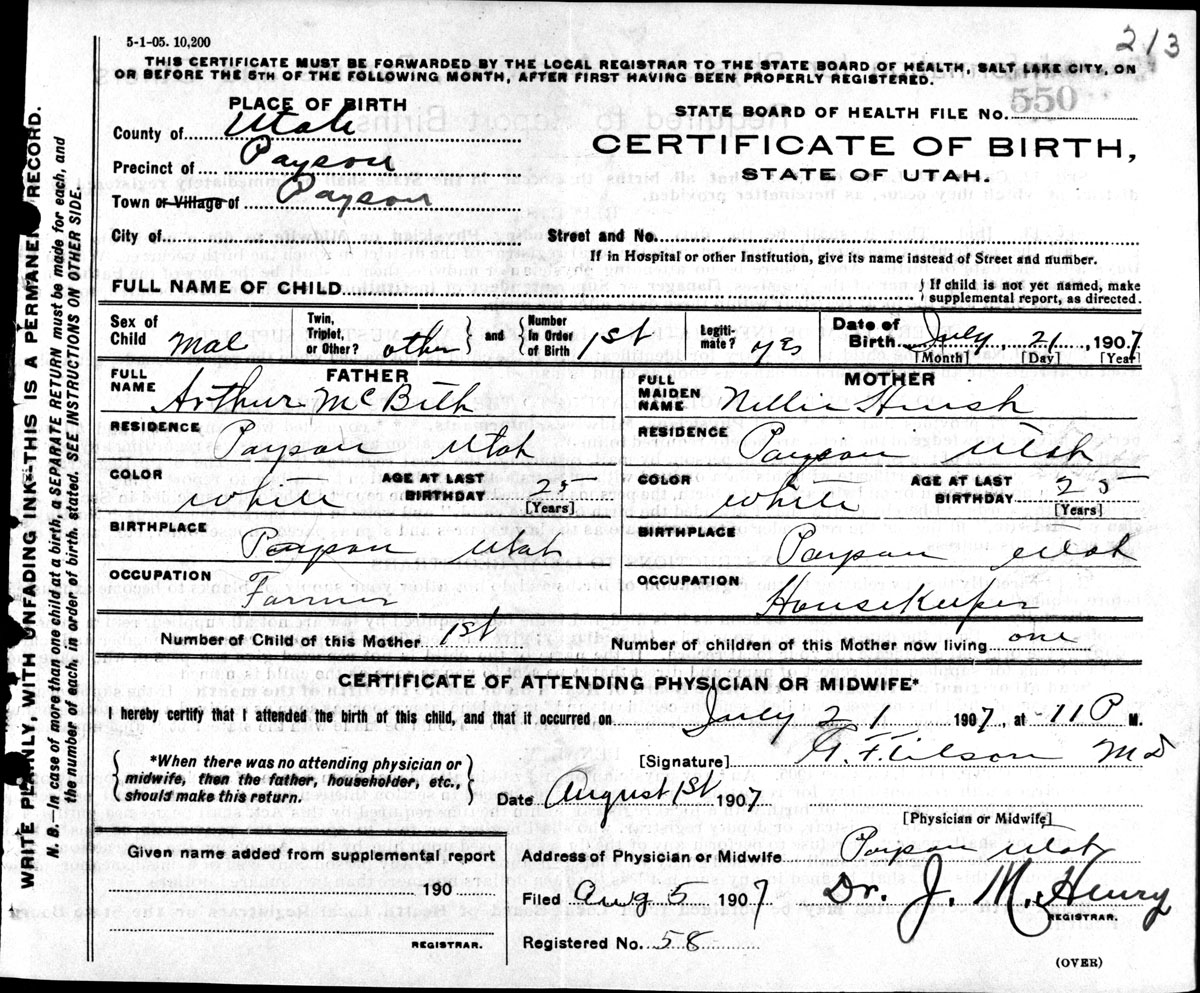 5-1-05. 10,200
213
THIS CERTIFICATE MUST BE FORWARDED BY THE LOCAL REGISTRAR TO THE STATE BOARD OF HEALTH, SALT LAKE CITY, ON
OR BEFORE THE 5TH OF THE FOLLOWING MONTH, AFTER FIRST HAVING BEEN PROPERLY REGISTERED.
PLACE OF BIRTH
STATE BOARD OF HEALTH FILE No. 550
County of Utah
CERTIFICATE OF BIRTH,
Precinct of Payson
STATE OF UTAH.
Town or Village of Payson
City of
Street and No.
If in Hospital or other Institution, give its name instead of Street and number.
FULL NAME OF CHILD
If child is not yet named, make
supplemental report, as directed.
Sex of Child Mal
Twin, Triplet, or Other? other
and
Number in Order of Birth 1st
Legitimate? yes
Date of Birth July 21, 1907
[Month] [Day] [Year]
FATHER
MOTHER
FULL NAME Arthur McBeth
FULL MAIDEN NAME Nellie
RESIDENCE Payson Utah
RESIDENCE Payson Utah
COLOR White AGE AT LAST BIRTHDAY 25 [Years]
COLOR White AGE AT LAST BIRTHDAY 25 [Years]
BIRTHPLACE Payson Utah
BIRTHPLACE Payson Utah
OCCUPATION Farmer
OCCUPATION Housekeeper
Number of Child of this Mother 1st
Number of children of this Mother now living one
CERTIFICATE OF ATTENDING PHYSICIAN OR MIDWIFE*
I hereby certify that I attended the birth of this child, and that it occurred on July 21 1907, at 11 P M.
*When there was no attending physician or
midwife, then the father, householder, etc.,
should make this return.
[Signature] M D
Date August 1st 1907
[Physician or Midwife]
Given name added from supplemental report
190
REGISTRAR.
Address of Physician or Midwife Payson Utah
Filed Aug 5 1907 Dr. J. M. Henry
REGISTRAR.
Registered No. 58
(OVER)
WRITE PLAINLY, WITH UNFADING INK--THIS IS A PERMANENT RECORD.
N. B.—In case of more than one child at a birth, a SEPARATE RETURN must be made for each, and
the number of each, in order of birth, stated. SEE INSTRUCTIONS ON OTHER SIDE.